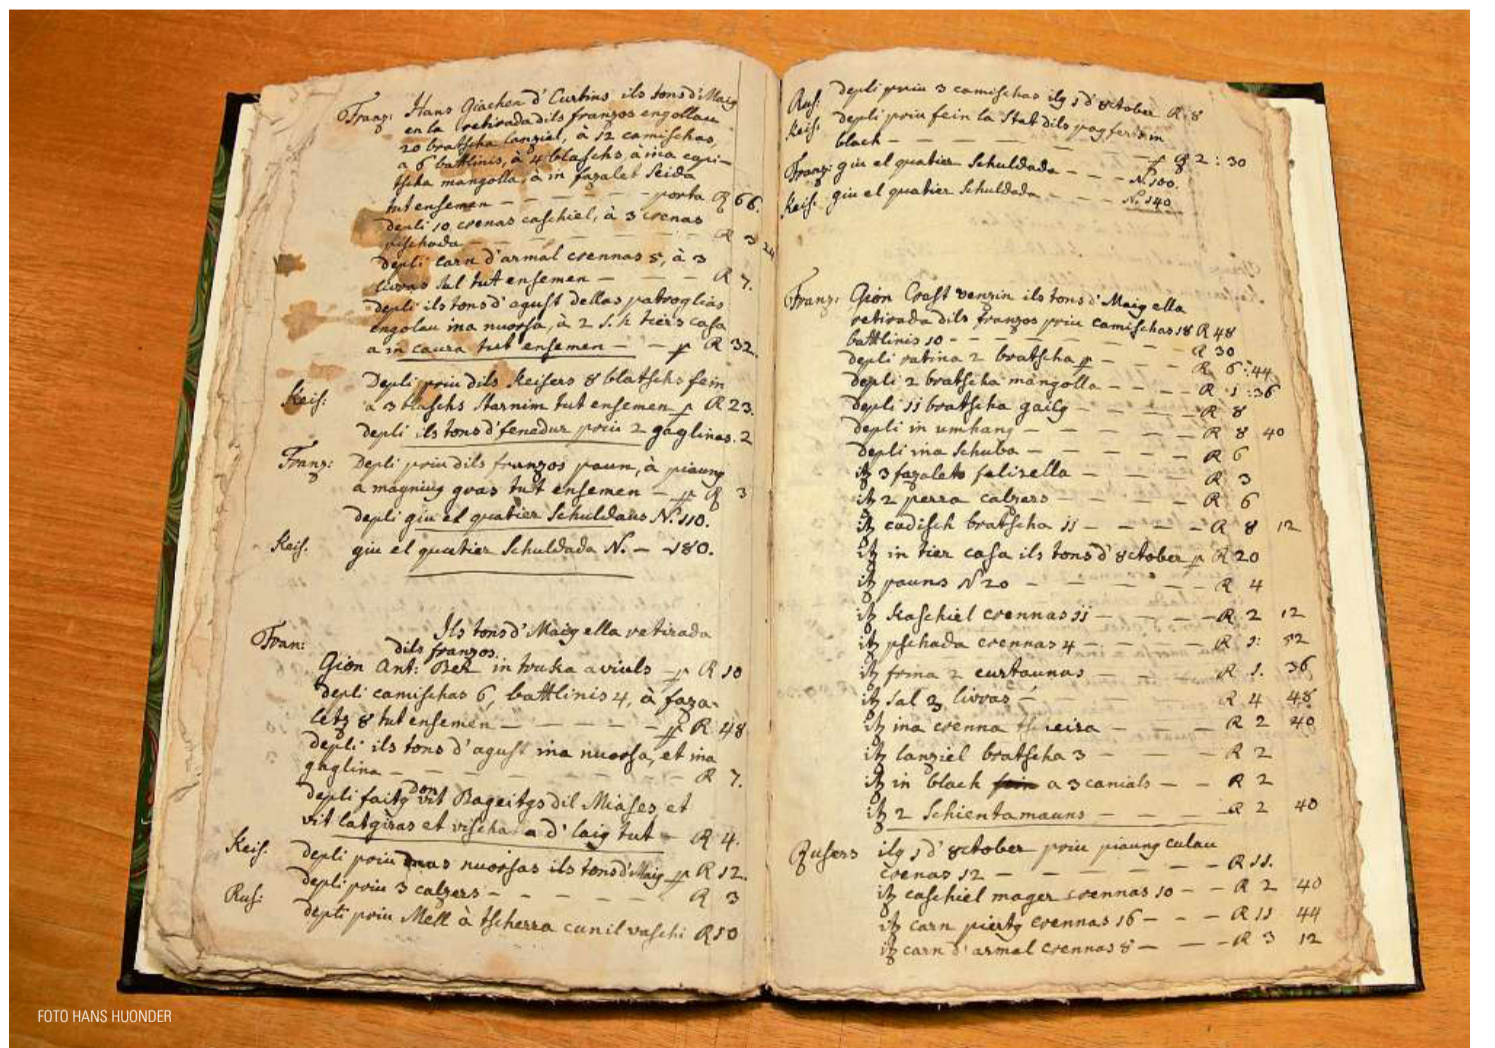 Franz: Hans Giachen d'Curtins ils tons d'Maig
en la retirada dils franzos engollau
20 bratscha lanziel, à 12 camischas,
a 6 battlinis, à 4 blaschs, à ina capi-
tscha mangolla, à in fazalet seida
tut ensemen — — — — porta R 66.
depli 10 crenas caschiel, à 3 crenas
pischada — — — — — R 3 24
depli carn d'armal crennas 5, à 3
livras sal tut ensemen — — — R 7.
depli ils tons d'agust dellas patroglias
engolau ina nuorsa, à 2 tiers casa
a in caura tut ensemen — — p R 32.
Keis: Depli priu dils Keisers 8 blatschs fein
à 3 blaschs starnim tut ensemen p R 23.
depli ils tons d'fenadur priu 2 gaglinas. 2
Franz: Depli priu dils franzos paun, à piaung
a magniug gras tut ensemen — p R 3
depli giu el quatier Schuldaus N. 110.
Keis. giu el quatier Schuldada N. — 180.
Fran: Ils tons d'Maig ella retirada
dils franzos.
Gion Ant: Ber in truka aviuls — p R 10
depli camischas 6, battlinis 4, à faza-
letz 8 tut ensemen — — — — p R 48
depli ils tons d'agust ina nuorsa, et ina
gaglina — — — — — — R 7.
depli faitg don vit Bageitgs dil Miases et
vit latgiras et vischa a d'laig tut — R 4.
Keis. depli priu nuorsas ils tons d'Maig p R 12.
depli priu 3 calzers — — — — R 3
Rus: depli priu Mell à tscherra cun il vaschi R 50
Rus: depli priu 3 camischas ilg 1 d'8ctober R. 8
Keis. depli priu fein la Stat dils pagferts in
blach — — — — — — p R 2 : 30
Franz: giu el quatier Schuldada — — — N. 100.
Keis. giu el quatier Schuldada — — — N. 140
Franz: Gion Crest venzin ils tons d'Maig ella
retirada dils franzos priu camischas 18 R 48
battlinis 10 — — — — — — R 30
depli ratina 2 bratscha p — — — R 6 : 44
depli 2 bratscha mangolla — — — R 1 : 36
depli 11 bratscha gaicg — — — R 8
depli in umhang — — — — R 8 40
depli ina Schuba — — — — R 6
itz 3 fazalets felisella — — — R 3
itz 2 perra calzers — — — — R 6
itz cudisch bratscha 11 — — — — R 8 12
itz in tier casa ils tons d'8ctober p R 20
itz pauns N 20 — — — — — R 4
itz Kaschiel crennas 11 — — — — R 2 12
itz pischada crennas 4 — — — — R 1: 52
itz frina 2 curtaunas — — — R 1. 36
itz Sal 3 livras — — — — R 4 48
itz ina crenna — — — R 2 40
itz lanziel bratscha 3 — — — R 2
itz in blach a 3 canials — — R 2
itz 2 Schientamauns — — — R 2 40
Rusers ilg 1 d'8ctober priu piaung culau
crenas 12 — — — — — — R 11.
itz caschiel mager crennas 10 — — R 2 40
itz carn piertg crennas 16 — — — R 11 44
itz carn d'armal crennas 8 — — — R 3 12
FOTO HANS HUONDER